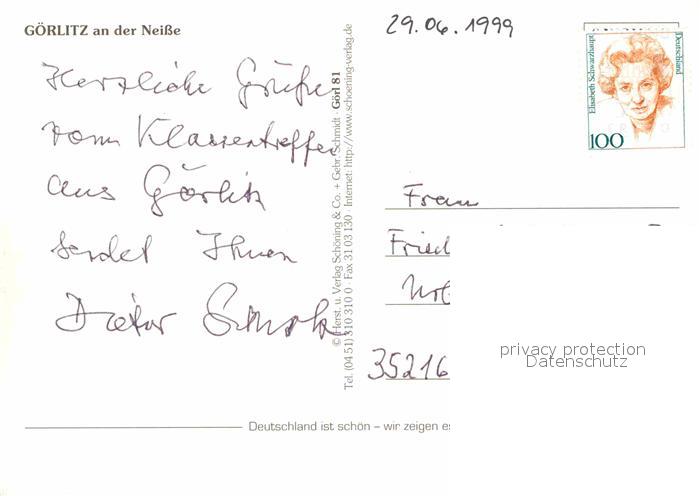 GÖRLITZ an der Neiße
29.06.1999
Herzliche Grüße
vom Klassentreffen
aus Görlitz
sendet Ihnen
Dieter
© Herst. u. Verlag Schöning & Co. + Gebr. Schmidt · Görl 81
Tel. (04 51) 310 310 0 · Fax 31 03 130 · Internet: http://www.schoening-verlag.de
Elisabeth Schwarzhaupt
Deutschland
100
Frau
Fried
35216
privacy protection
Datenschutz
Deutschland ist schön – wir zeigen es